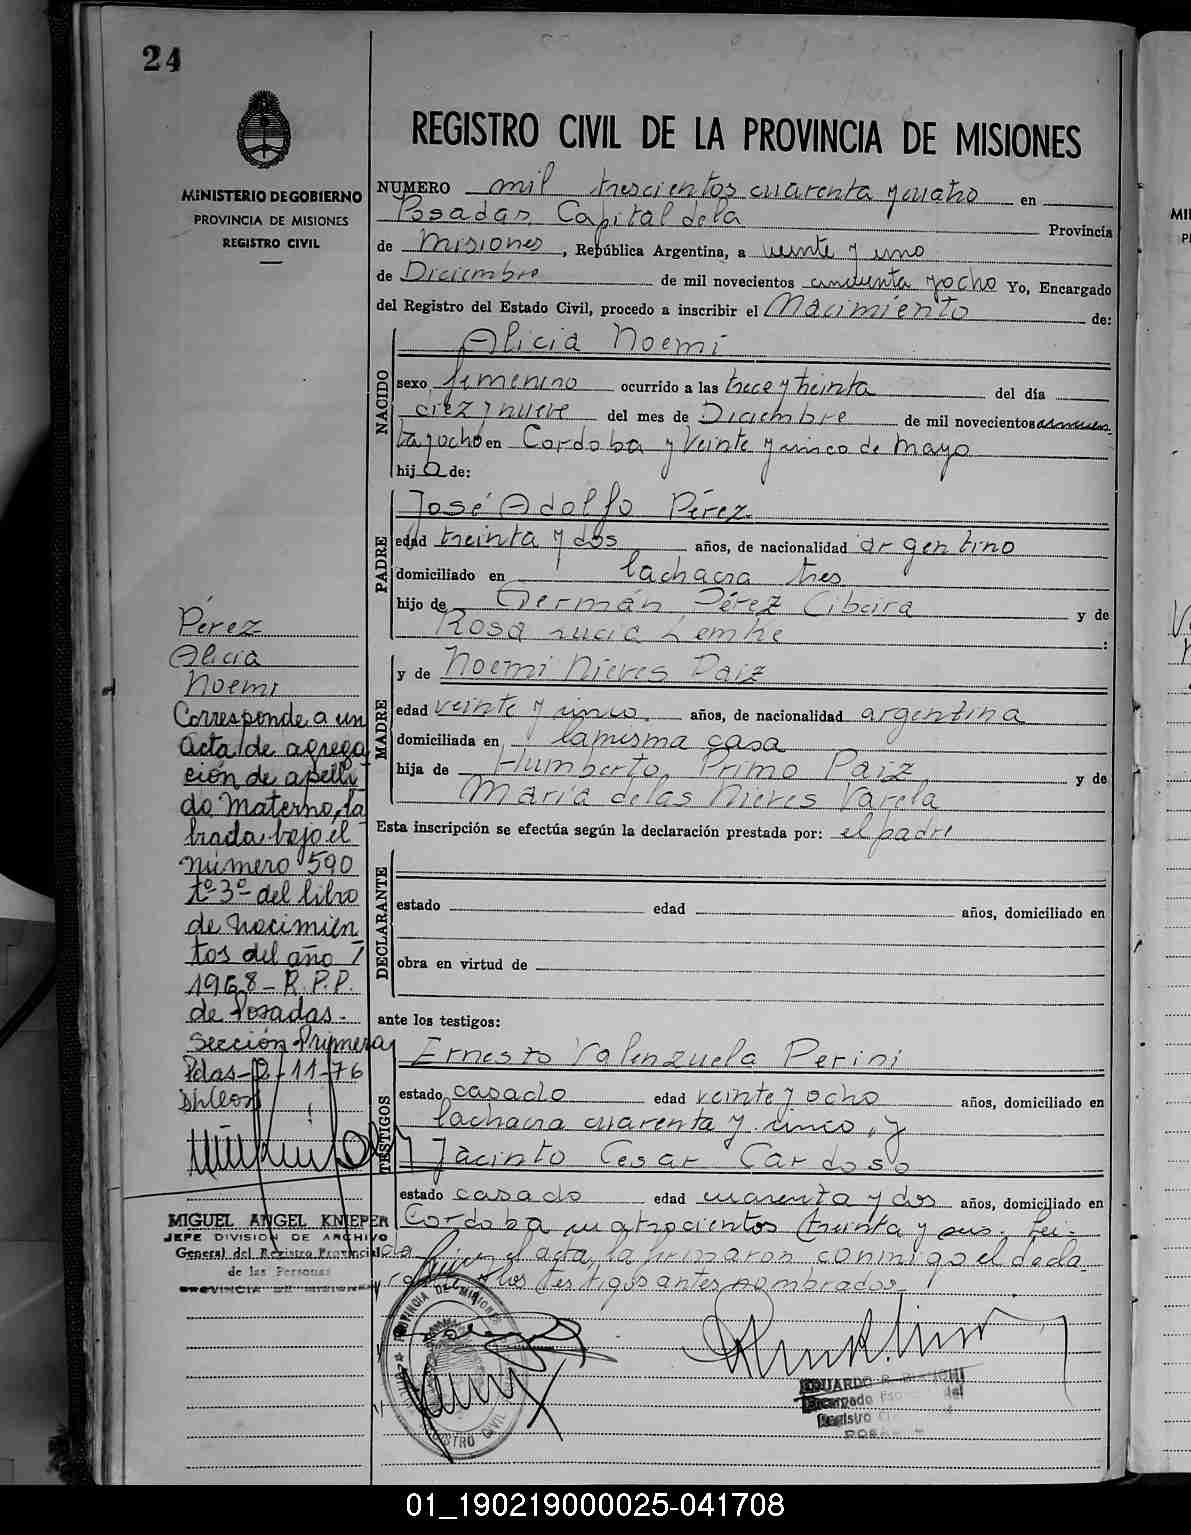 24
MINISTERIO DE GOBIERNO
PROVINCIA DE MISIONES
REGISTRO CIVIL
REGISTRO CIVIL DE LA PROVINCIA DE MISIONES
NUMERO mil trescientos cuarenta y cuatro en
Posadas Capital de la Provincia
de Misiones, República Argentina, a veinte y uno
de Diciembre de mil novecientos cincuenta y ocho Yo, Encargado
del Registro del Estado Civil, procedo a inscribir el Nacimiento de:
NACIDO
Alicia Noemi
sexo femenino ocurrido a las trece y treinta del día
diez y nueve del mes de Diciembre de mil novecientos cincuen
ta y ocho en Cordoba y Veinte y cinco de Mayo
hija de:
PADRE
José Adolfo Pérez
edad treinta y dos años, de nacionalidad argentino
domiciliado en la chacra tres
hijo de Germán Pérez Cibeira y de
Rosa Lucia Lemke :
MADRE
y de Noemi Nieves Paiz
edad veinte y cinco años, de nacionalidad argentina
domiciliada en la misma casa
hija de Humberto Primo Paiz y de
Maria de las Nieves Varela
Esta inscripción se efectúa según la declaración prestada por: el padre
DECLARANTE
estado edad años, domiciliado en
obra en virtud de
ante los testigos:
TESTIGOS
Ernesto Valenzuela Perini
estado casado edad veinte y ocho años, domiciliado en
la chacra cuarenta y cinco, y
Jacinto Cesar Cardoso
estado casado edad cuarenta y dos años, domiciliado en
Cordoba cuatrocientos treinta y seis, Lei-
da el acta la firmaron conmigo el decla-
los testigos antes nombrados
Pérez
Alicia
Noemi
Corresponde a un
Acta de agrega
ción de apelli
do Materno, la
brada bajo el
número 590
tº 3º del libro
de Nacimien
tos del año
1968 - R.P.P.
de Posadas -
Sección Primera
Pdas - 2 - 11 - 76
MIGUEL ANGEL KNIEPER
JEFE DIVISION DE ARCHIVO
General del Registro Provincial
de las Personas
PROVINCIA DE MISIONES
PROVINCIA DE MISIONES
REGISTRO CIVIL
EDUARDO R. BIANCHI
Encargado del
Registro
01_190219000025-041708